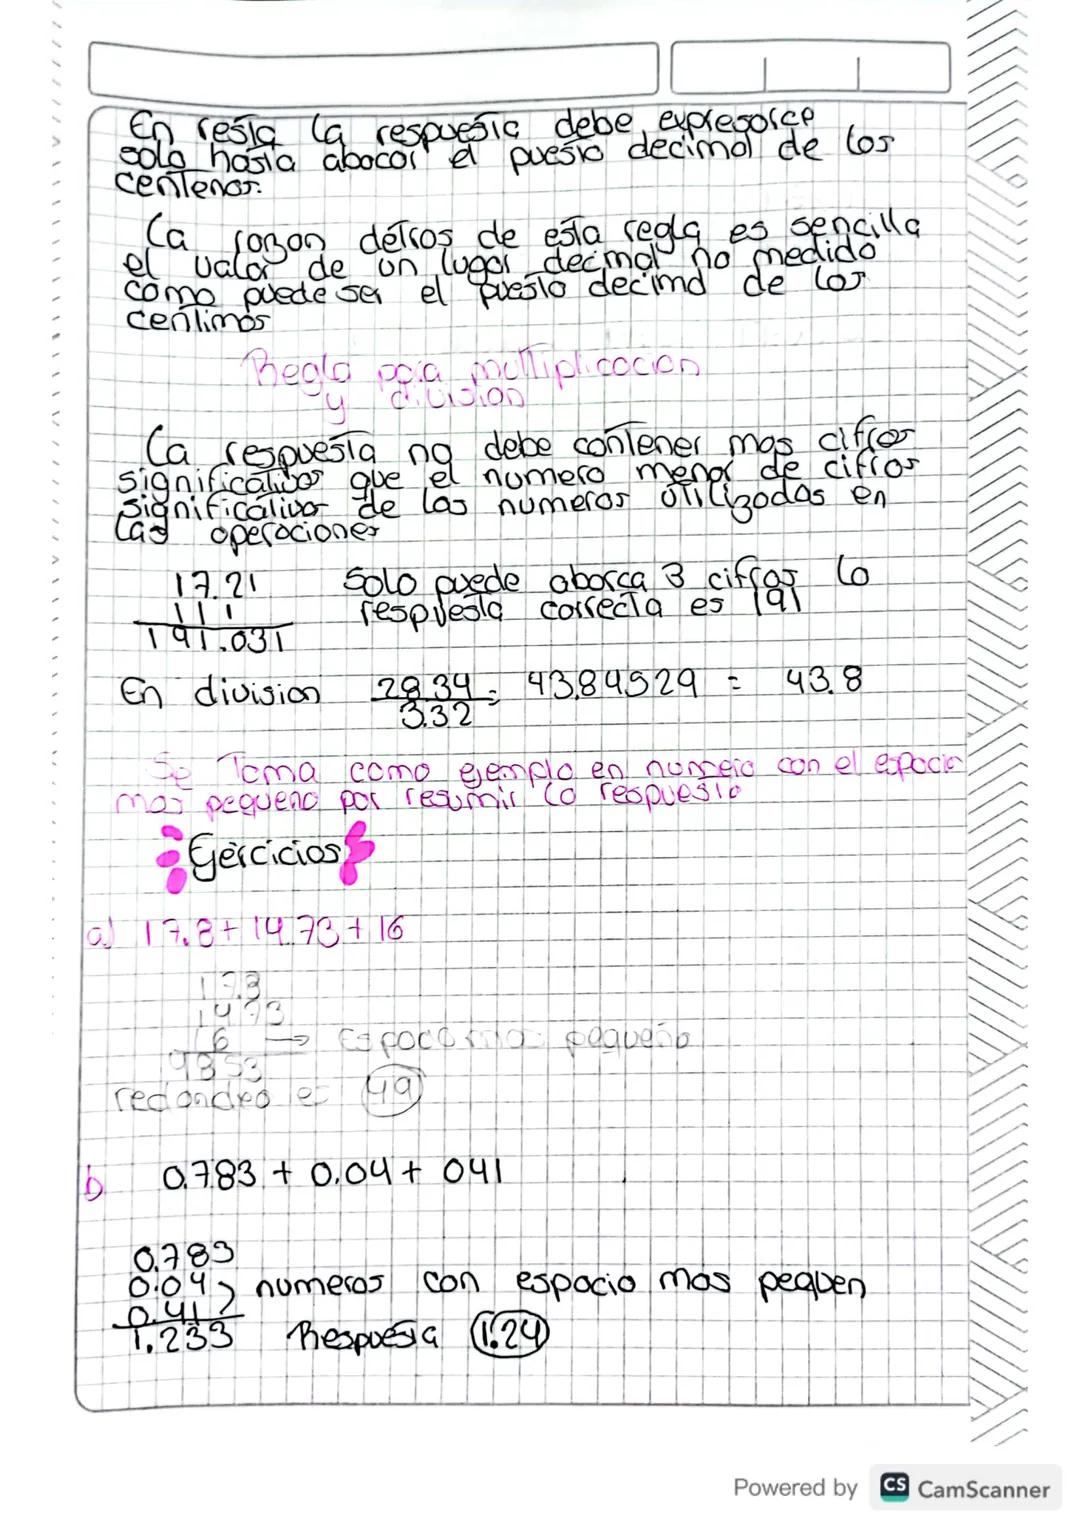 En resta la respuesta debe expresarce
solo hasta abocar el puesto decimal de los
centenas.
La razon detras de esta regla es sencilla
el valor de un lugar decimal no medido
como puede ser el puesto decimal de los
centimos
Regla para multiplicacion
y division
La respuesta no debe contener mas cifras
significativas que el numero menor de cifras
significativas de los numeros utilizados en
las operaciones
17.21 Solo puede aborca 3 cifras la
111 respuesta correcta es 191
191.031
En division 28.34 = 43.84529 = 43.8
3.32
Se Toma como ejemplo en numero con el espacio
mas pequeno por resumir la respuesta
Ejercicios
a) 17.8 + 14.73 + 16
17.8
14 73
16 → espaco mas pequeño
48 53
redondeo es 49
b 0.783 + 0.04 + 041
0.783
0.04 numeros con espacio mas pequen
0.41
1.233 Respuesta 1.24
Powered by CS CamScanner